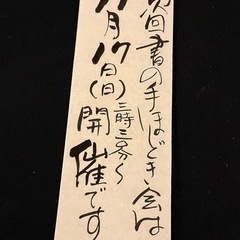 次回書の手ほどき会は
11月17日(日)三時三〇分〜開催です